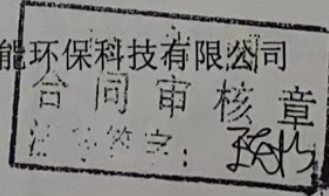 能环保科技有限公司
合同审核章
签字：